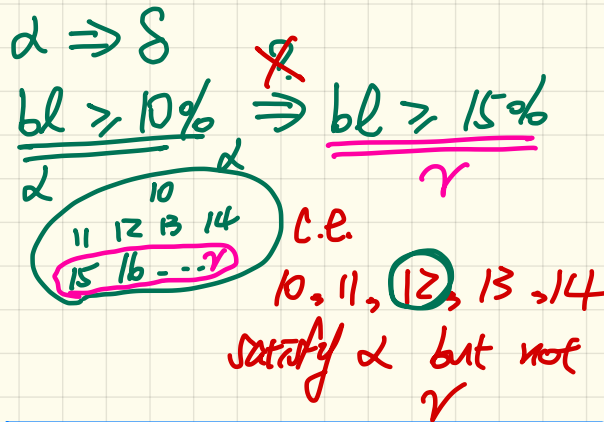 α ⇒ δ
?
bl ≥ 10% ⇒ bl ≥ 15%
α γ
α
10
11 12 13 14
15 16 - - - γ
c.e.
10, 11, 12, 13, 14
satisfy α but not
γ